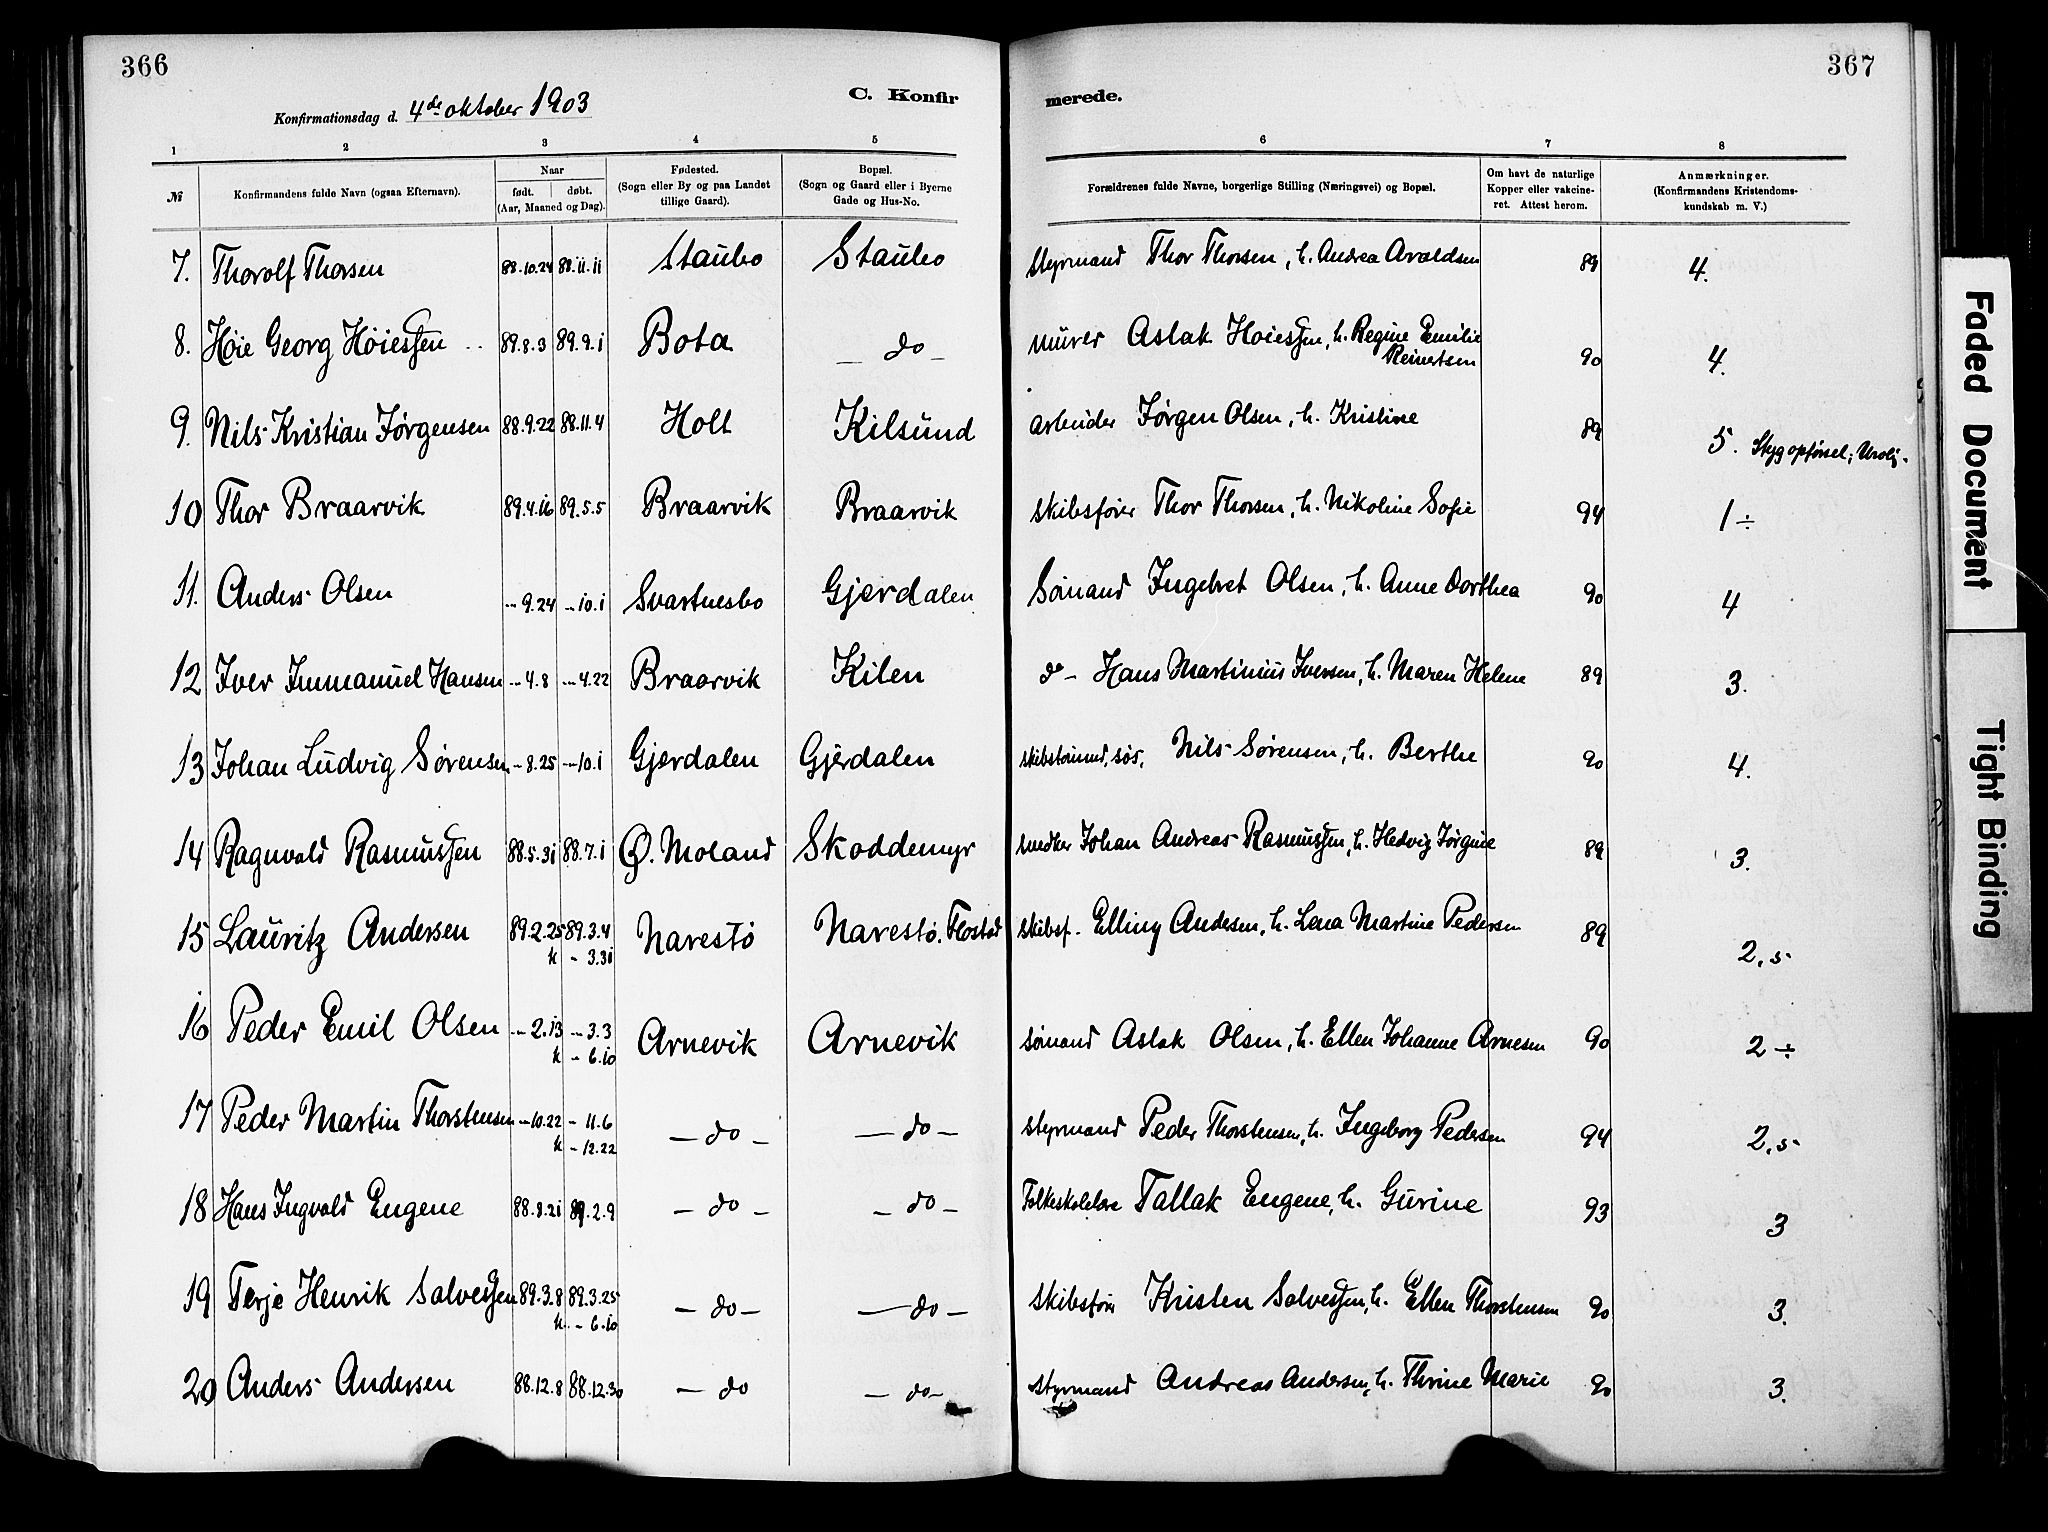 366
367
Konfirmationsdag d. 4de oktober 1903
C. Konfirmerede.
1 2 3 4 5 6 7 8
№ Konfirmandens fulde Navn (ogsaa Efternavn). Naar født. døbt. (Aar, Maaned og Dag). Fødested. (Sogn eller By og paa Landet tillige Gaard). Bopæl. (Sogn og Gaard eller i Byerne Gade og Hus-No. Forældrenes fulde Navne, borgerlige Stilling (Næringsvei) og Bopæl. Om havt de naturlige Kopper eller vakcineret. Attest herom. Anmærkninger. (Konfirmandens Kristendomskundskab m. V.)
7. Thorolf Thorsen 88.10.24 88.11.11 Staubo Staubo Styrmand Thor Thorsen, h. Andrea Avaldsen 89 4.
8. Høie Georg Høiessen 89.8.3 89.9.1 Bota - do - murer Aslak Hoiessen, h. Regine Emilie Reinertsen 90 4.
9. Nils Kristian Jørgensen 88.9.22 88.11.4 Holt Kilsund arbeider Jørgen Olsen, h. Kristine 89 5. Styg opførsel; Urolig.
10 Thor Braarvik 89.4.16 89.5.5 Braarvik Braarvik Skibsfører Thor Thorsen, h. Nikoline Sofie 94 1 ÷
11. Anders Olsen -- 9.24 -- 10.1 Svartnesbo Gjerdalen Sømand Ingebret Olsen, h. Anne Dorthea 90 4
12 Iver Immanuel Hansen -- 4.8 -- 4.22 Braarvik Kilen do - Hans Martinius Iversen, h. Maren Helene 89 3.
13 Johan Ludvig Sørensen - 8.25 -- 10.1 Gjerdalen Gjerdalen skibstømmd, søs, Nils Sørensen, h. Berthe 90 4.
14 Ragnvald Rasmussen 88.5.31 88.7.1 Ø. Moland Skoddemyr snedker Johan Andreas Rasmussen, h. Hedvig Jørgine 89 3.
15 Lauritz Andersen 89.2.25 89.3.4 Narestø Narestø. Flostad skibsf. Elling Andersen, h. Lena Martine Pedersen 89 2,5
k - 3.31
16 Peder Emil Olsen -- 2.13 -- 3.3 Arnevik Arnevik sømand Aslak Olsen, h. Ellen Johanne Arnesen 90 2 ÷
k - 6.10
17 Peder Martin Thorstensen -- 10.22 - 11.6 - do - - do - styrmand Peder Thorstensen, h. Ingeborg Pedersen 94 2,5
k - 12.22
18 Hans Ingvald Eugene 88.8.21 89.2.9 - do - - do - Folkeskolelære Tallak Eugene, h. Gurine 93 3
19 Terje Henrik Salvessen 89.3.8 89.3.25 - do - - do - Skibsfør Kristen Salvessen, h. Ellen Thorstensen 90 3.
k. - 6.10
20 Anders Andersen 88.12.8 88.12.30 - do - do - Styrmand Andreas Andersen, h. Thrine Marie 90 3.
Faded Document
Tight Binding